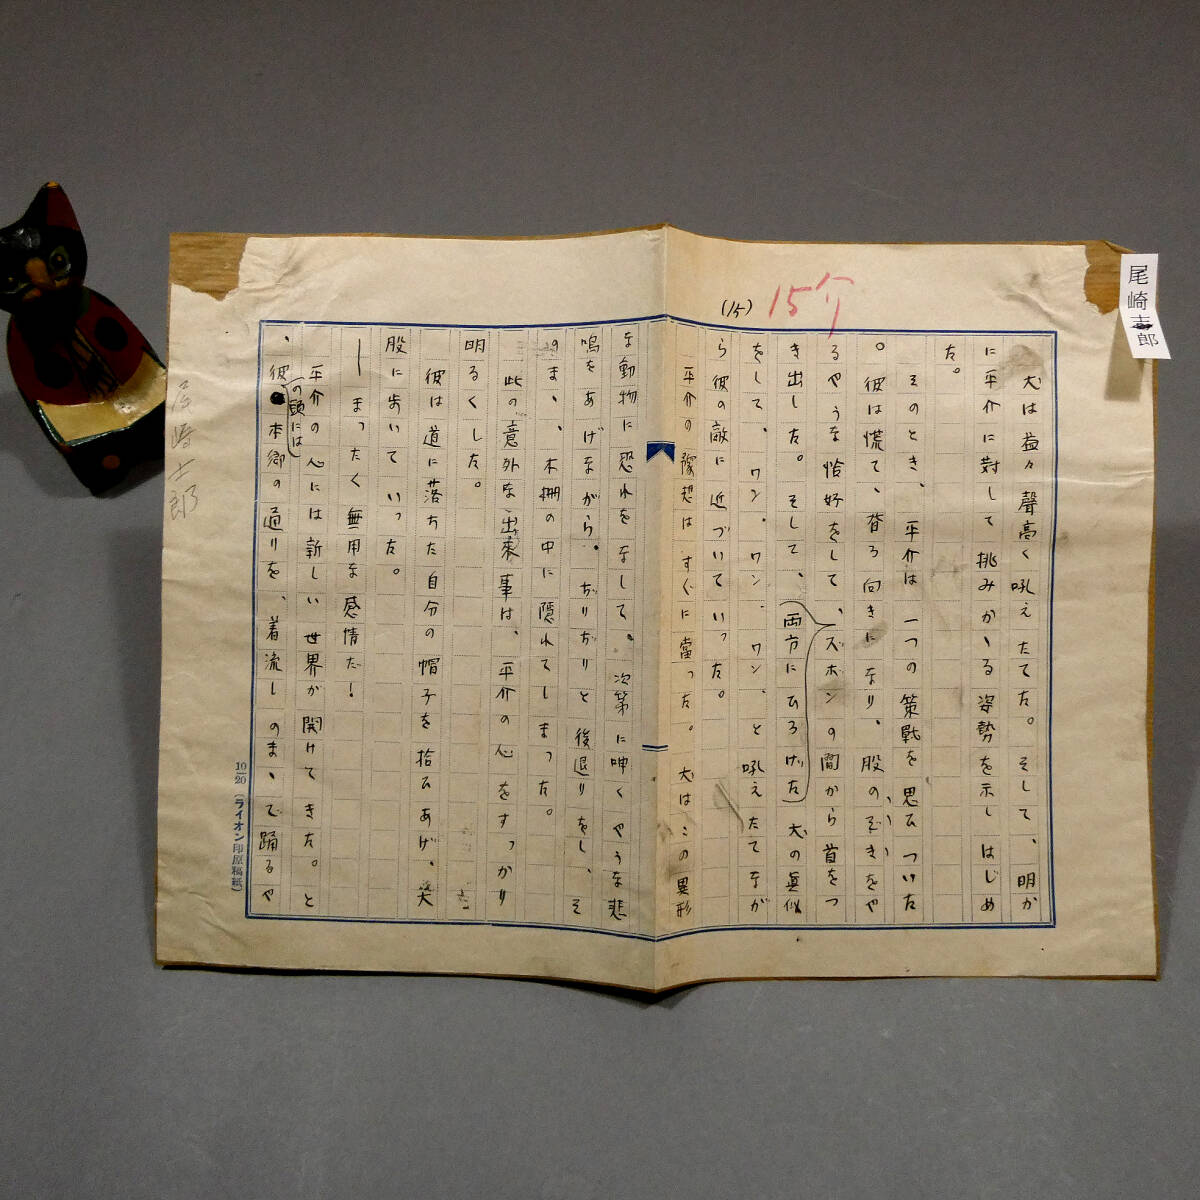 尾崎士郎
15介
(15)
犬は益々聲高く吼えたてた。そして、明か
に平介に対して挑みかゝる姿勢を示しはじめ
た。
そのとき、平介は一つの策戰を思ひついた
。彼は慌て、背ろ向きになり、股のぞきをや
るやうな恰好をして、ズボンの間から首をつ
き出した。そして、両方にひろげた犬の眞似
をして、ワン・ワン・ワン・と吼えたてなが
ら彼の敵に近づいていった。
平介の豫想はすぐに當った。犬はこの異形
な動物に恐れをなして。次第に呻くやうな悲
鳴をあげながら。ぢりぢりと後退りをし、そ
のまゝ、木柵の中に隱れてしまった。
此の意外な出來事は、平介の心をすっかり
明るくした。
彼は道に落ちた自分の帽子を拾ひあげ、大
股に歩いていった。
― まったく無用な感情だ!
平介の心には新しい世界が開けてきた。と
、彼の頭には本郷の通りを、着流しのまゝで踊るや
尾崎士郎
10/20 (ライオン印原稿紙)